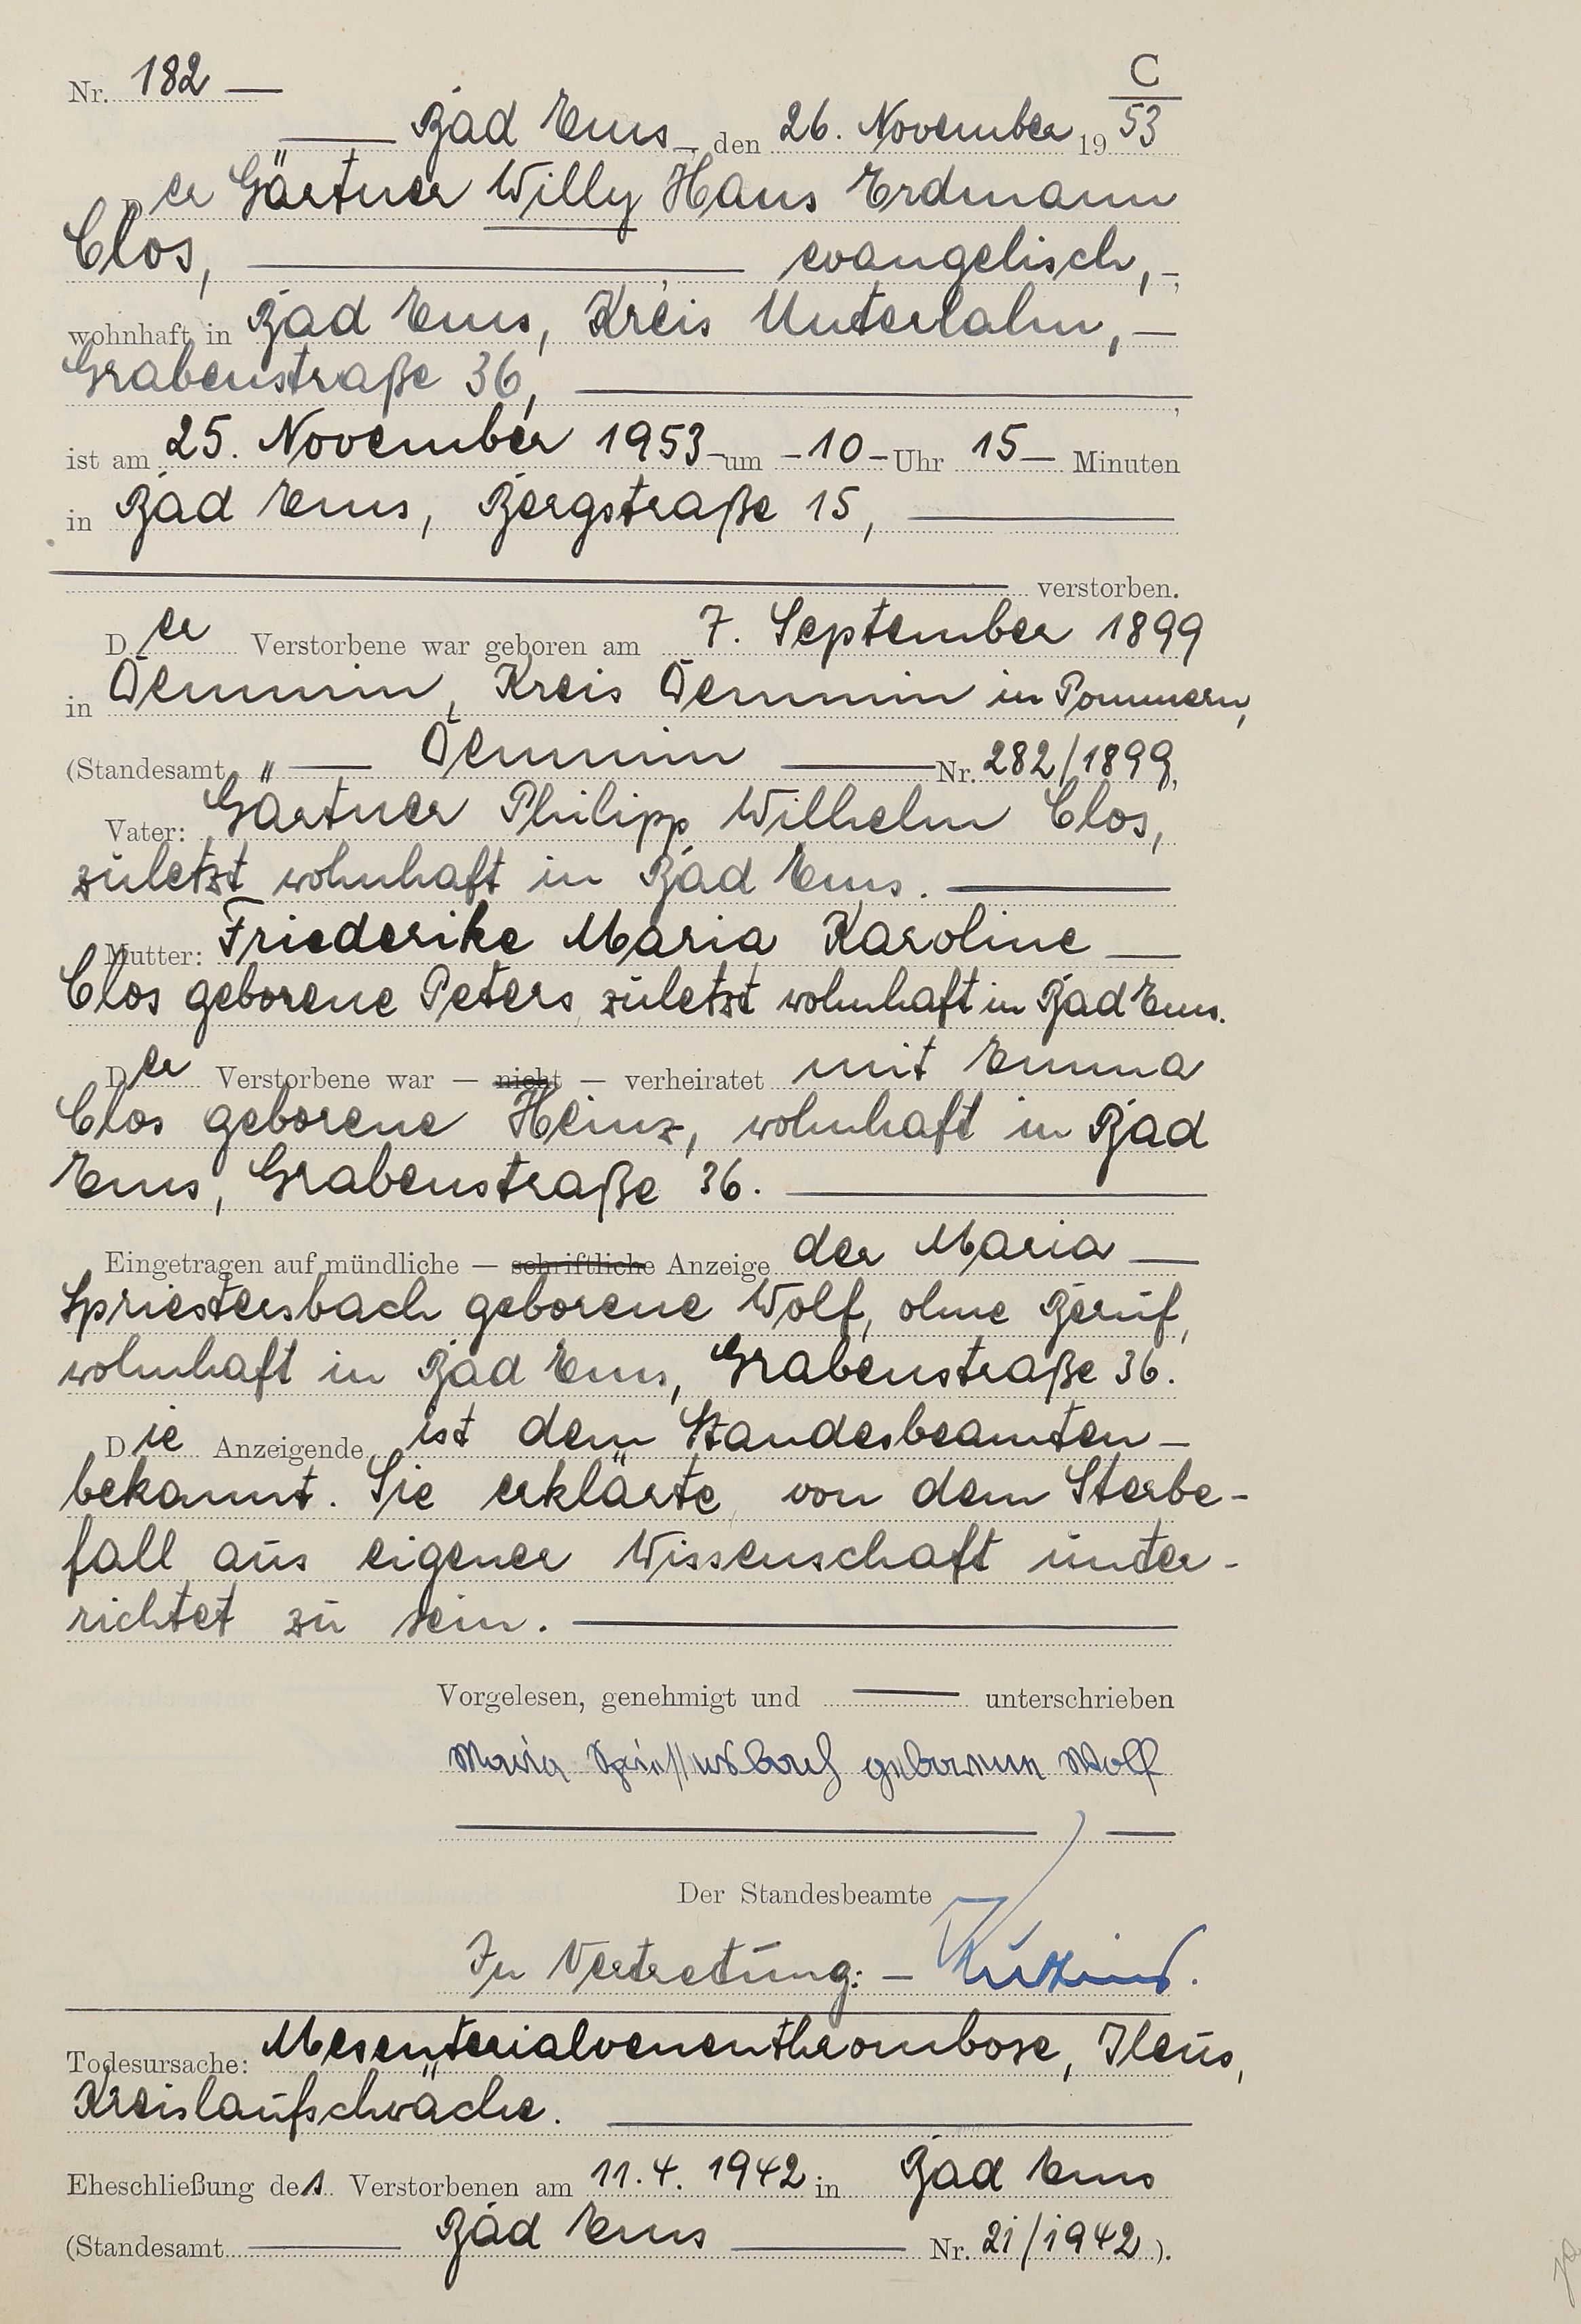 C
Nr. 182 —
— Bad Ems —, den 26. November 1953
Der Gärtner Willy Hans Erdmann
Clos, — evangelisch, —
wohnhaft in Bad Ems, Kreis Unterlahn, —
Grabenstraße 36, —
ist am 25. November 1953 — um — 10 — Uhr 15 — Minuten
in Bad Ems, Bergstraße 15, —
— verstorben.
Der Verstorbene war geboren am 7. September 1899
in Demmin, Kreis Demmin in Pommern,
(Standesamt — Demmin — Nr. 282/1899,
Vater: Gärtner Philipp Wilhelm Clos,
zuletzt wohnhaft in Bad Ems. —
Mutter: Friederike Maria Karoline —
Clos geborene Peters, zuletzt wohnhaft in Bad Ems.
Der Verstorbene war — nicht — verheiratet mit Emma
Clos geborene Heinz, wohnhaft in Bad
Ems, Grabenstraße 36. —
Eingetragen auf mündliche — schriftliche Anzeige der Maria —
Spriestersbach geborene Wolf, ohne Beruf,
wohnhaft in Bad Ems, Grabenstraße 36.
Die Anzeigende ist dem Standesbeamten —
bekannt. Sie erklärte, von dem Sterbe-
fall aus eigener Wissenschaft unter-
richtet zu sein. —
Vorgelesen, genehmigt und — unterschrieben
Maria Spriestersbach geborene Wolf
Der Standesbeamte
In Vertretung: —
Todesursache: Mesenterialvenenthrombose, Ileus,
Kreislaufschwäche. —
Eheschließung des Verstorbenen am 11.4.1942 in Bad Ems
(Standesamt — Bad Ems — Nr. 21/1942).